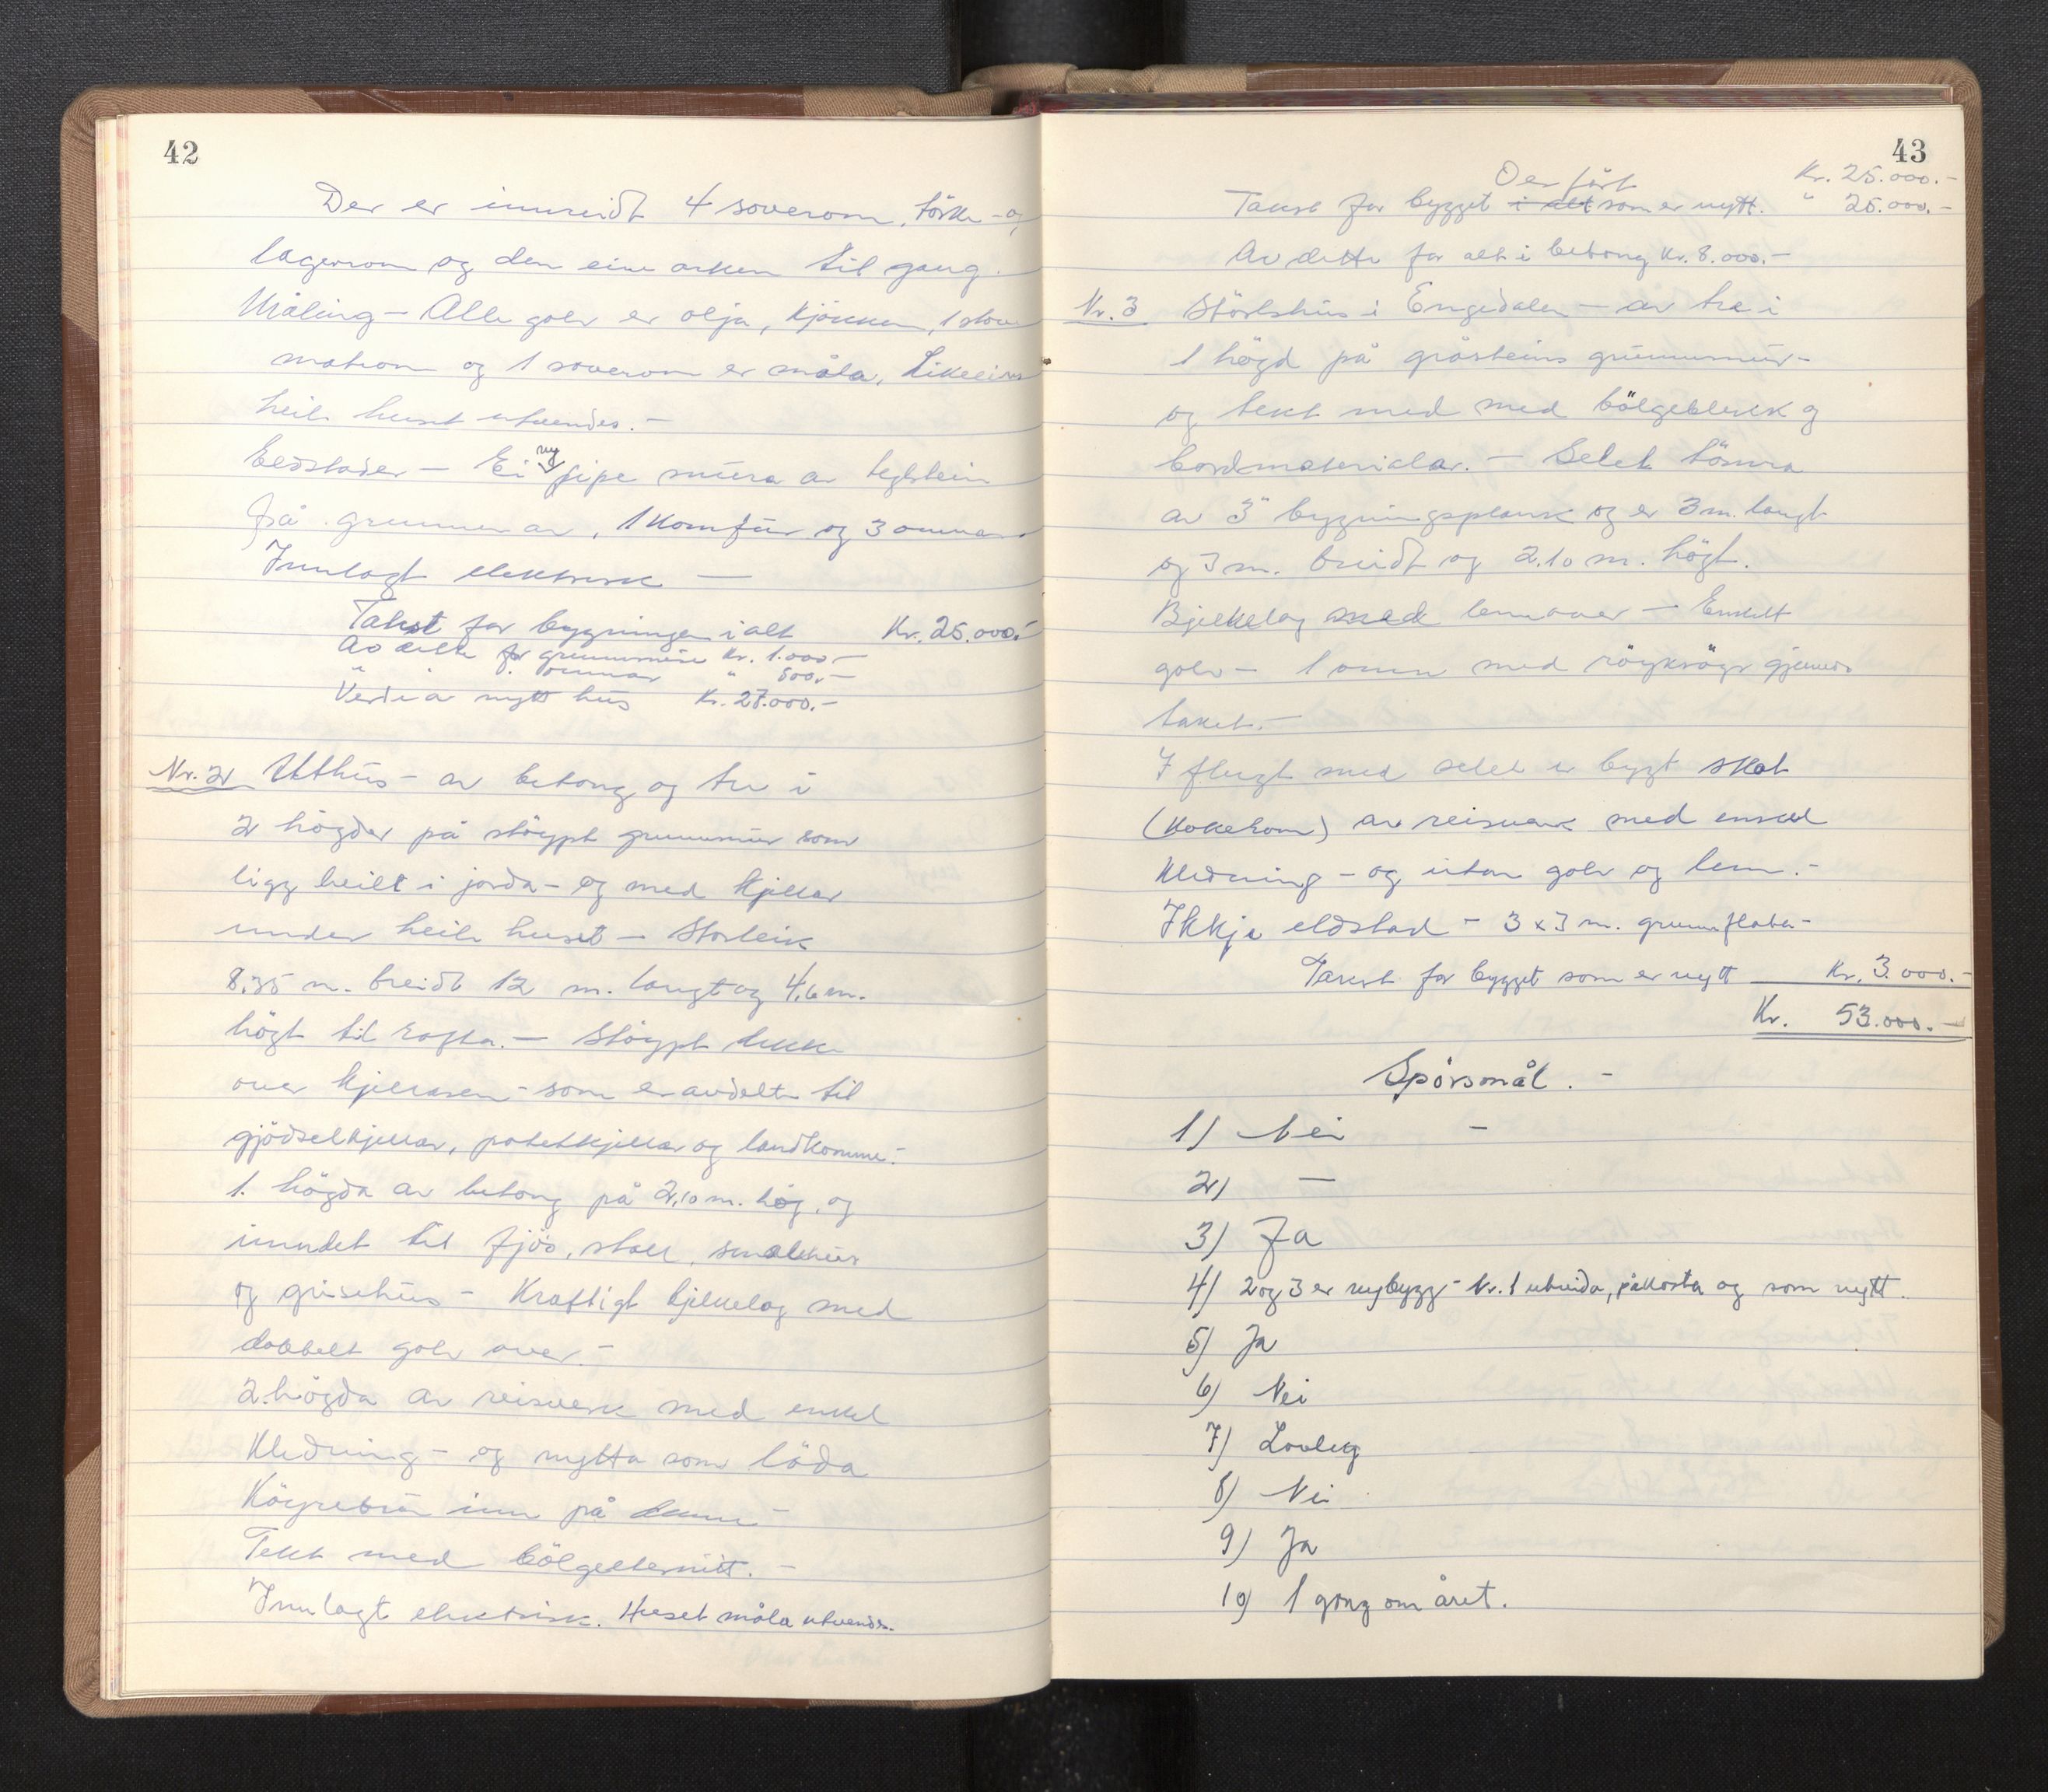 42
Der er innreidt 4 soverom, törke- og
lagerrom og den eine arken til gang.
Måling - Alle golv er olja, kjökken, 1 stove
matrom og 1 soverom er måla, Likeeins
heile huset utvendes. -
Eldstader - Ei ny pipe mura av teglstein
frå grunnen av, 1 komfur og 3 omnar.
Innlagt elektrisk -
Takst for bygningen i alt Kr. 25.000.-
Av dette for grunnmure Kr. 1.000.-
" f. omnar " 500.-
Verdi a nytt hus Kr. 27.000.-
Nr. 2 Uthus - av betong og tre i
2 högder på stöypt grunnmur som
ligg heilt i jorda - og med kjellar
under heile huset - Storleik
8,35 m. breidt 12 m. langt og 4,6 m.
högt til rafta. - Stöypt dekke
over kjellaren - som er avdelt til
gjödselkjellar, potetkjellar og landkomme.-
1. högda av betong på 2,10 m. hög, og
innredet til fjös, stall, smalehus
og grisehus - Kraftigt bjelkelag med
dobbelt golv over. -
2. högda av reisverk med enkel
Kledning - og nytta som löda
Köyrebru inn på denne -
Tekt med bölgeeternitt. -
Innlagt elektrisk. Huset måla utvendes.
43
Overfört Kr. 25.000.-
Takst for bygget i alt som er nytt. " 25.000.-
Av dette for alt i betong Kr. 8.000.-
Nr. 3 Störlshus i Engedalen - av tre i
1 högd på gråsteins grunnmur -
og tekt med med bölgeblekk og
bordmaterialar. - Selet tömra
av 3" bygningsplank og er 3 m. langt
og 3 m. breidt og 2.10 m. högt.
Bjelkelag med lem over - Enkelt
golv - 1 omn med röykröyr gjennom
taket. -
I flugt med selet er bygt skot
(kokerom) av reisverk med enkel
Kledning - og utan golv og lem. -
Ikkje eldstad - 3 x 3 m. grunnflate -
Takst for bygget som er nytt Kr. 3.000.-
Kr. 53.000.-
Spörsmål. -
1) Nei -
2) -
3) Ja
4) 2 og 3 er nybygg - Nr. 1 utvida, påkosta og som nytt.
5) Ja
6) Nei
7) Lovleg
8) Nei
9) Ja
10) 1 gong om året.